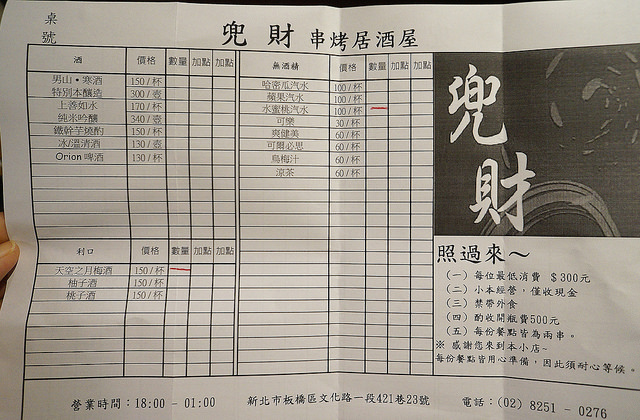 桌
號
兜財 串烤居酒屋
酒 價格 數量 加點 加點
男山•寒酒 150/杯
特別本釀造 300/壺
上善如水 170/杯
純米吟釀 340/壺
鐵幹芋燒酌 150/杯
冰/溫清酒 130/壺
Orion 啤酒 130/杯
利口 價格 數量 加點 加點
天空之月梅酒 150/杯
柚子酒 150/杯
桃子酒 150/杯
無酒精 價格 數量 加點 加點
哈密瓜汽水 100/杯
蘋果汽水 100/杯
水蜜桃汽水 100/杯
可樂 30/杯
爽健美 60/杯
可爾必思 60/杯
烏梅汁 60/杯
涼茶 60/杯
兜財
照過來～
(一) 每位最低消費 $300元
(二) 小本經營，僅收現金
(三) 禁帶外食
(四) 酌收開瓶費500元
(五) 每份餐點皆為兩串。
※ 感謝您來到本小店~
每份餐點皆用心準備，因此須耐心等候。
營業時間：18:00 - 01:00 新北市板橋區文化路一段421巷23號 電話：(02) 8251 - 0276